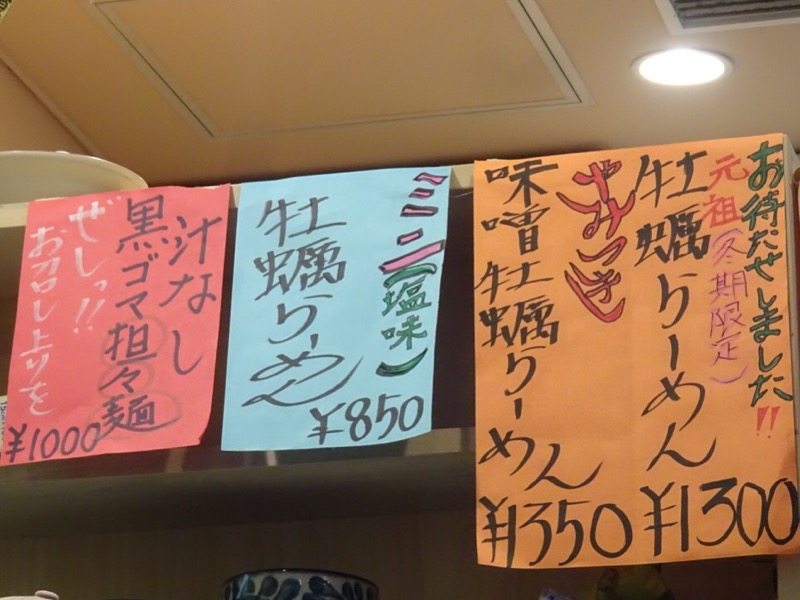 お待たせしました!!
元祖(冬期限定)
牡蠣らーめん
¥1300
やみつき
味噌牡蠣らーめん
¥1350
ミニ(塩味)
牡蠣らーめん
¥850
汁なし
黒ゴマ担々麺
ぜしっ!!
お召し上りを
¥1000